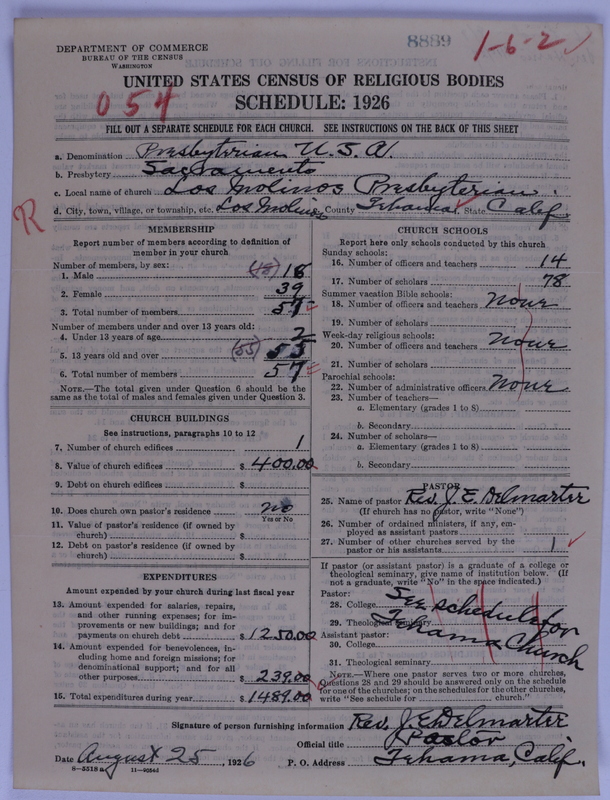 8889
1-6-2
DEPARTMENT OF COMMERCE
BUREAU OF THE CENSUS
WASHINGTON
UNITED STATES CENSUS OF RELIGIOUS BODIES
SCHEDULE: 1926
054
FILL OUT A SEPARATE SCHEDULE FOR EACH CHURCH. SEE INSTRUCTIONS ON THE BACK OF THIS SHEET
a. Denomination Presbyterian U.S.A.
b. Presbytery Sacramento
c. Local name of church Los Molinos Presbyterian.
d. City, town, village, or township, etc. Los Molinos County Tehama State Calif
R
MEMBERSHIP
Report number of members according to definition of
member in your church
Number of members, by sex:
1. Male (18) 18
2. Female 39
3. Total number of members 57
Number of members under and over 13 years old:
4. Under 13 years of age 2
5. 13 years old and over (55) 55
6. Total number of members 57
NOTE.—The total given under Question 6 should be the
same as the total of males and females given under Question 3.
CHURCH BUILDINGS
See instructions, paragraphs 10 to 12
7. Number of church edifices 1
8. Value of church edifices $ 400.00
9. Debt on church edifices $
10. Does church own pastor's residence no
Yes or No
11. Value of pastor's residence (if owned by
church) $
12. Debt on pastor's residence (if owned by
church) $
EXPENDITURES
Amount expended by your church during last fiscal year
13. Amount expended for salaries, repairs,
and other running expenses; for im-
provements or new buildings; and for
payments on church debt $ 1250.00
14. Amount expended for benevolences, in-
cluding home and foreign missions; for
denominational support; and for all
other purposes $ 239.00
15. Total expenditures during year $ 1489.00
CHURCH SCHOOLS
Report here only schools conducted by this church
Sunday schools:
16. Number of officers and teachers 14
17. Number of scholars 78
Summer vacation Bible schools:
18. Number of officers and teachers None
19. Number of scholars
Week-day religious schools:
20. Number of officers and teachers None
21. Number of scholars
Parochial schools:
22. Number of administrative officers None
23. Number of teachers—
a. Elementary (grades 1 to 8)
b. Secondary
24. Number of scholars—
a. Elementary (grades 1 to 8)
b. Secondary
PASTOR
25. Name of pastor Rev. J. E. Delmarter
(If church has no pastor, write "None")
26. Number of ordained ministers, if any, em-
ployed as assistant pastors
27. Number of other churches served by the
pastor or his assistants 1
If pastor (or assistant pastor) is a graduate of a college or
theological seminary, give name of institution below. (If
not a graduate, write "No" in the space indicated.)
Pastor:
28. College See schedule for
29. Theological seminary Tehama Church
Assistant pastor:
30. College
31. Theological seminary
NOTE.—Where one pastor serves two or more churches,
Questions 28 and 29 should be answered only on the schedule
for one of the churches; on the schedules for the other churches,
write "See schedule for church."
Signature of person furnishing information Rev. J. E. Delmarter
Official title Pastor
Date August 25, 1926 P. O. Address Tehama, Calif.
8-5518 a